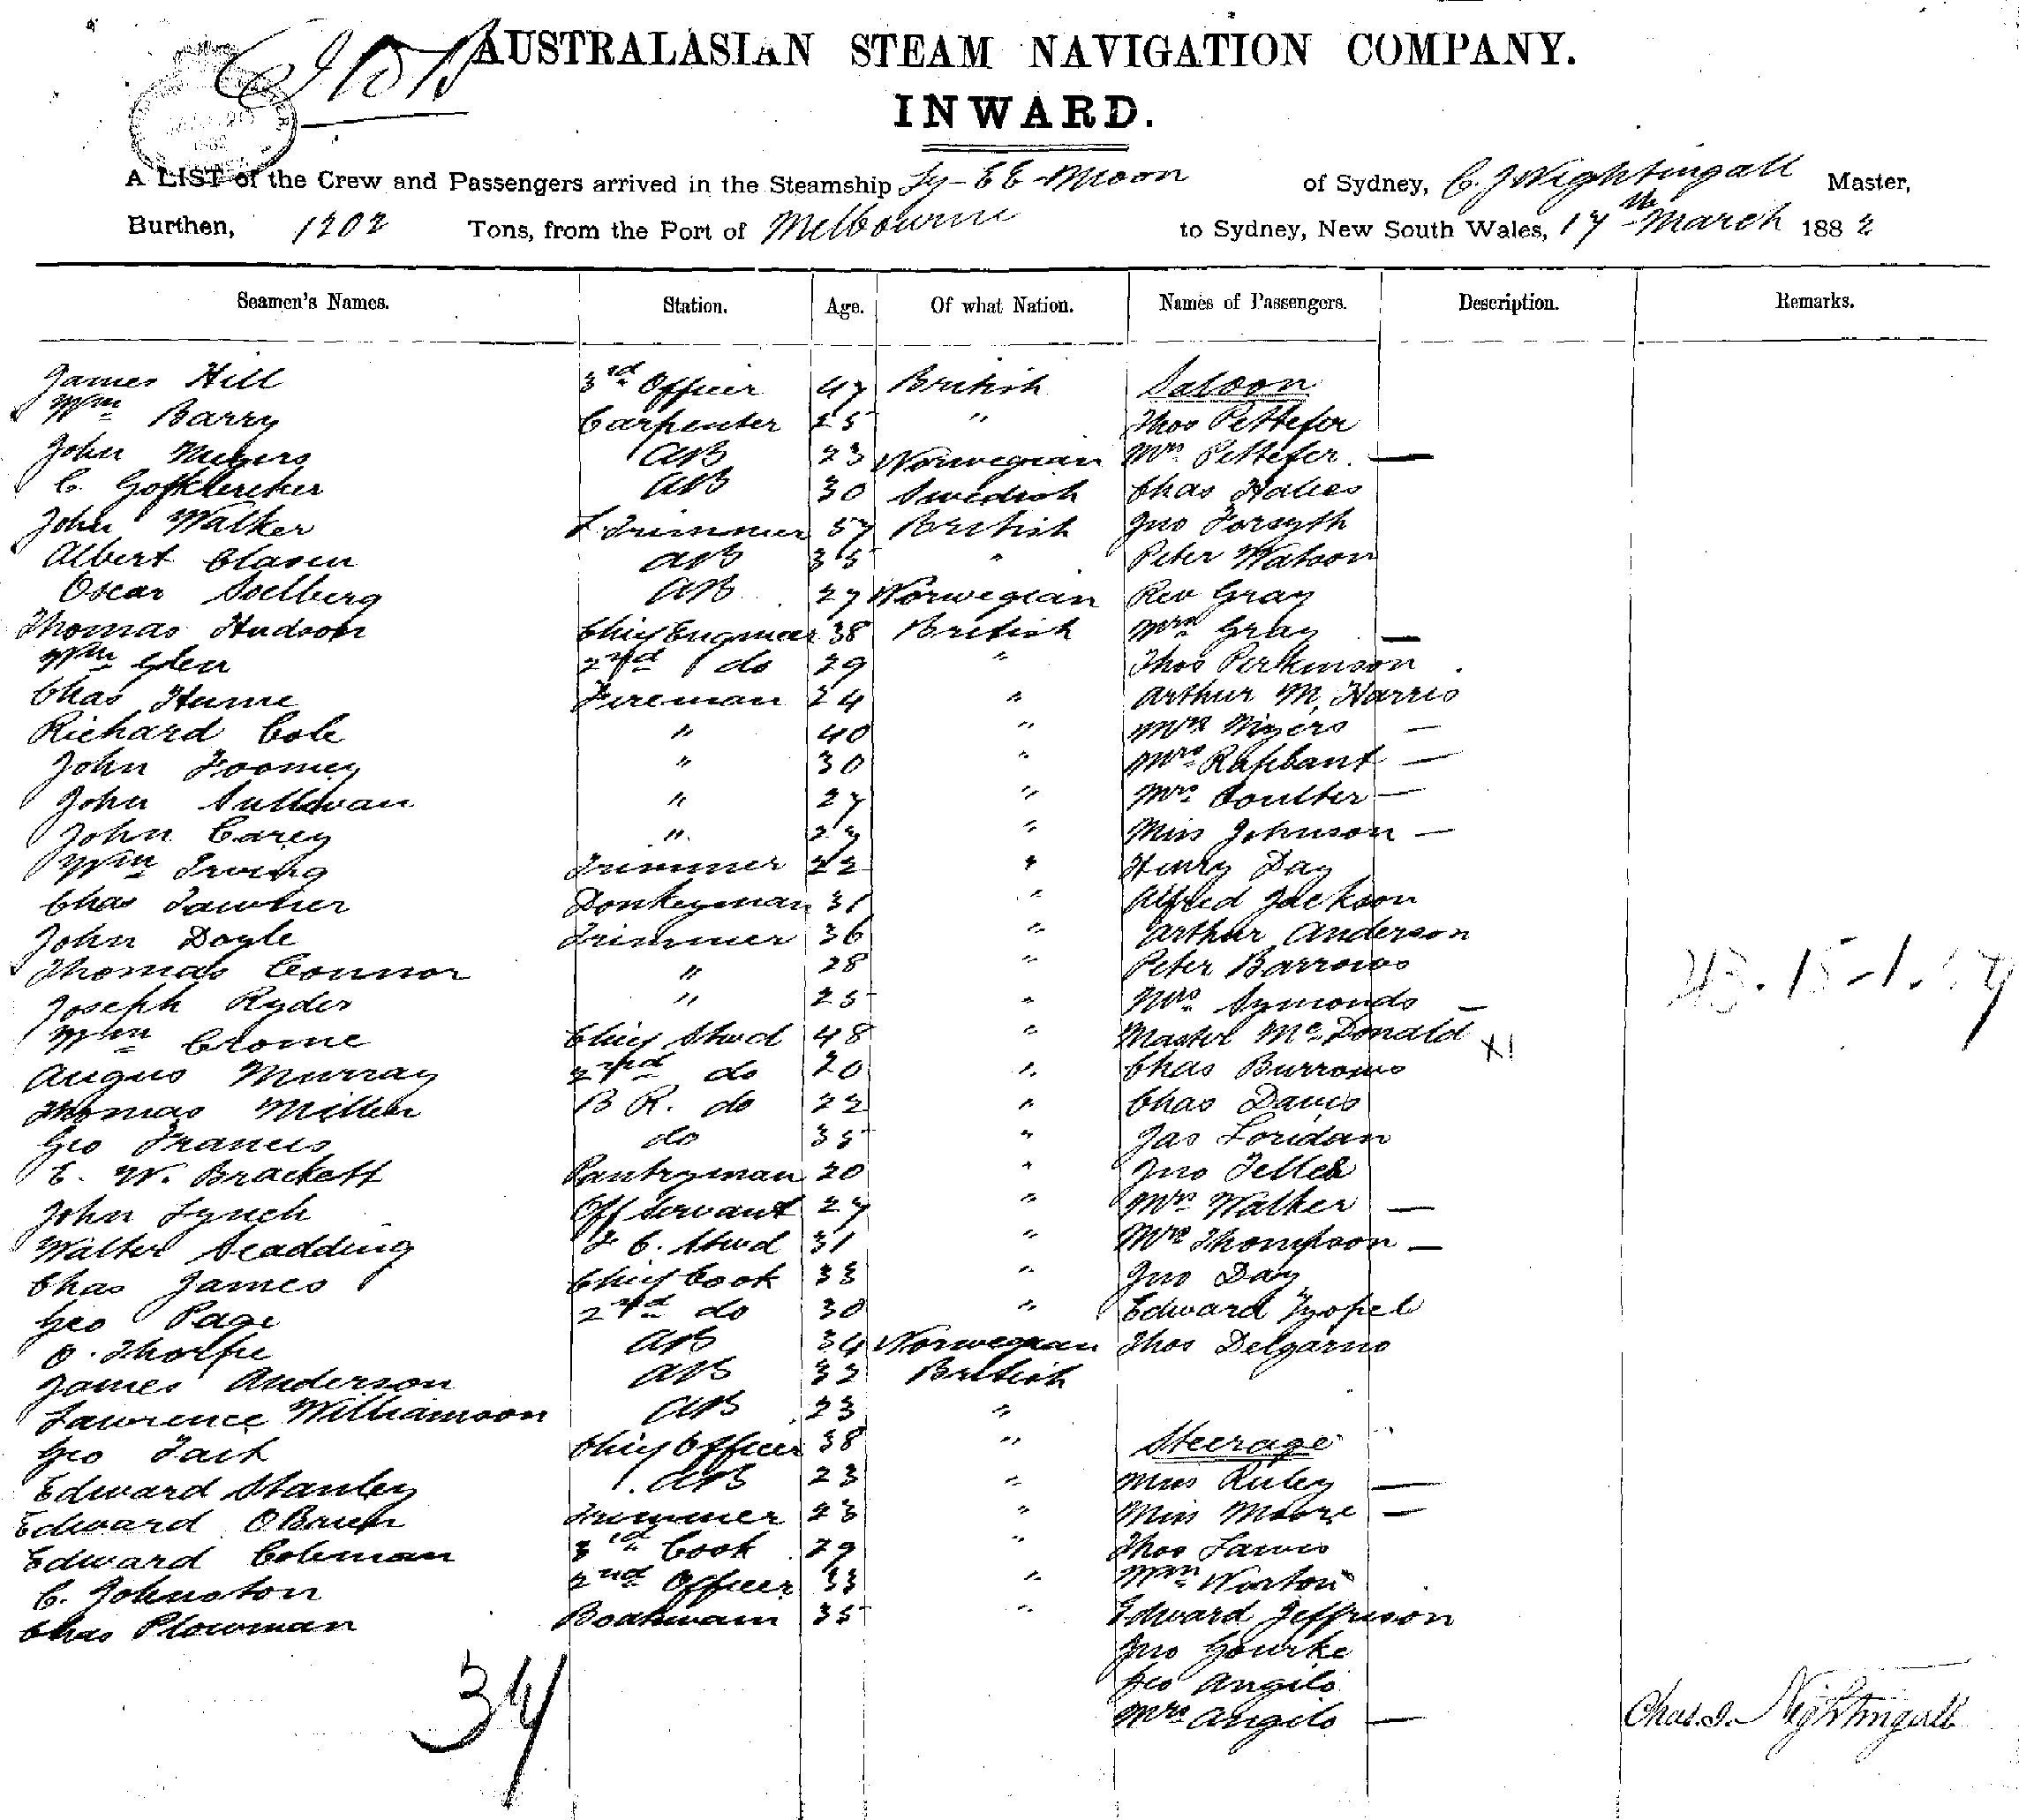 AUSTRALASIAN STEAM NAVIGATION COMPANY.
INWARD.
A LIST of the Crew and Passengers arrived in the Steamship Ly-EE-Moon of Sydney, C. J Nightingall Master,
Burthen, 1202 Tons, from the Port of Melbourne to Sydney, New South Wales, 17th March 1882
Seamen's Names. Station. Age. Of what Nation. Names of Passengers. Description. Remarks.
James Hill 3rd Officer 47 British Saloon
Wm Barry Carpenter 25 " Thos Pettefer
John AB 23 Norwegian Mrs Pettefer. —
C. AB 30 Swedish Chas Hales
John Walker Trimmer 57 British Jno Forsyth
Albert Clasen AB 35 " Peter Watson
Oscar Soelberg AB 27 Norwegian Rev Gray
Thomas Hudson Chief Engineer 38 British Mrs Gray —
Wm Glen 2nd do 29 " Thos Perkinson
Chas Hume Fireman 24 " Arthur M. Harris
Richard Cole " 40 " Mrs Myers —
John Toomey " 30 " Mrs —
John Sullivan " 27 " Mrs Coulter —
John Carey " 27 " Miss Johnson —
Wm Irving Trimmer 22 " Henry Day
Chas Donkeyman 31 " Alfred Jackson
John Doyle Trimmer 36 " Arthur Anderson
Thomas Connor " 28 " Peter Barrows
Joseph Ryder " 25 " Mrs Symonds —
Wm Crome Chief Stwd 48 " Master McDonald X1
Angus Murray 2nd do 20 " Chas Burrows
Thomas Miller B R. do 22 " Chas Davis
Geo Francis do 35 " Jas Loridan
E. W. Brackett Pantryman 20 " Jno
John Lynch Off Servant 27 " Mrs Walker —
Walter Scadding F C. Stwd 31 " Mrs Thompson —
Chas James Chief Cook 33 " Jno Day
Geo Page 2nd do 30 " Edward
O. Thorpe AB 34 Norwegian Thos Delgarno
James Anderson AB 32 British
Lawrence Williamson AB 23 "
Geo Tait Chief Officer 38 " Steerage
Edward Stanley AB 23 " Miss Riley —
Edward OBrien Trimmer 23 " Miss Moore —
Edward Coleman 3rd Cook 29 " Thos
C. Johnston 2nd Officer 33 " Wm Norton
Chas Plowman Boatswain 35 " Edward Jefferson
Jno Gourke
Geo Angilo
Mrs Angilo —
37
Chas. J. Nightingall